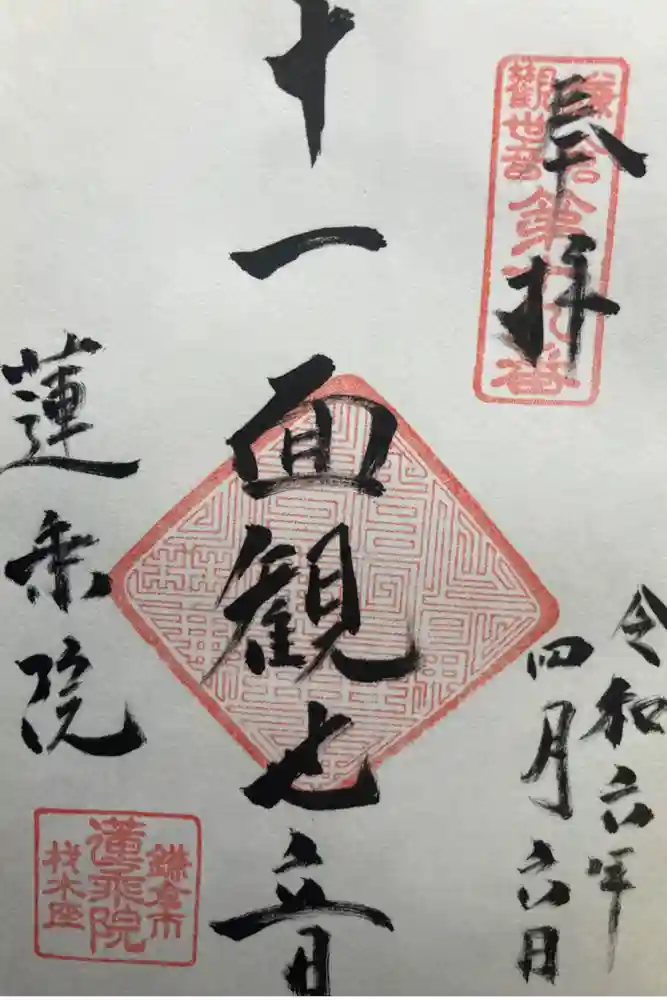 奉拝
鎌倉
觀世音
第十九番
令和六年
四月六日
十一面観世音
蓮乗院
鎌倉市
蓮乗院
材木座